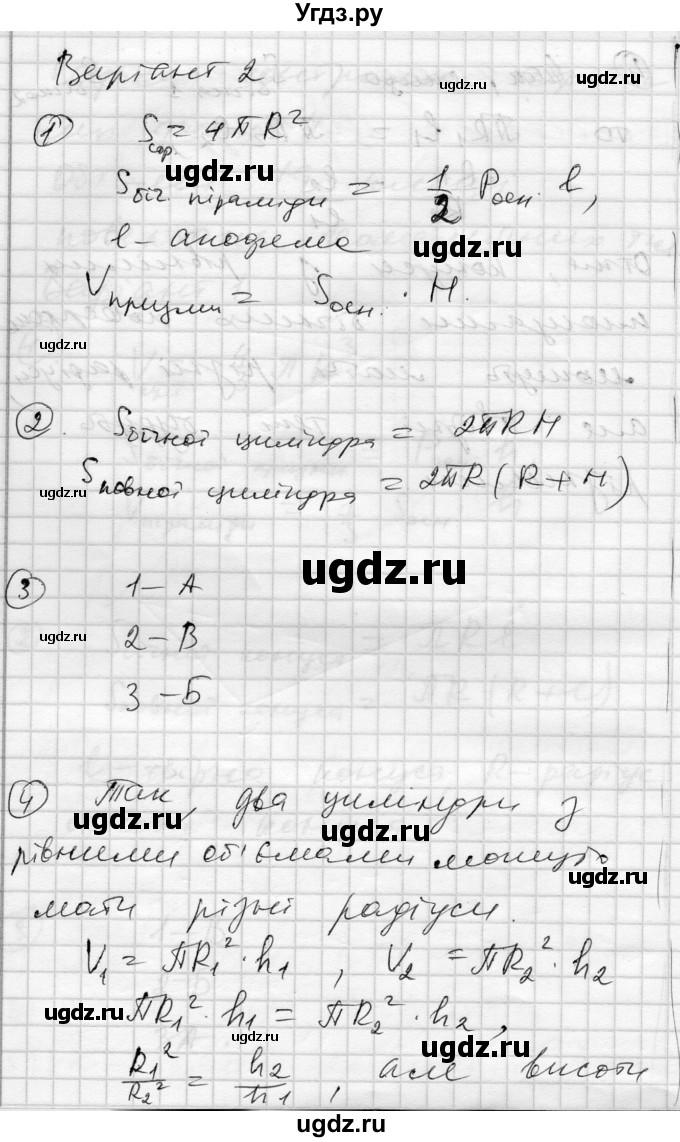 Угдз.ру
Варіант 2
ugdz.ru
ugdz.ru
1 Sсф. = 4πR²
ugdz.ru
Sбіч. піраміди = 1/2 Pосн. · l,
l – апофема
ugdz.ru
Vпризми = Sосн. · H.
ugdz.ru
2. Sбічної циліндра = 2πRH
Sповної циліндра = 2πR(R+H)
ugdz.ru
ugdz.ru
3 1 – А
2 – В
ugdz.ru
3 – Б
4 Так, два циліндри з
ugdz.ru
ugdz.ru
рівними об'ємами можуть
мати різні радіуси.
V₁ = πR₁² · h₁, V₂ = πR₂² · h₂
πR₁² · h₁ = πR₂² · h₂,
ugdz.ru
ugdz.ru
ugdz.ru
R₁²/R₂² = h₂/h₁, але висоти
ugdz.ru
Угдз.ру